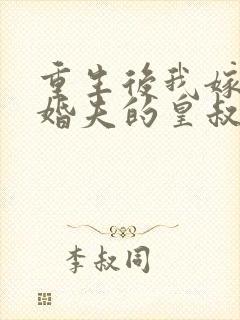 重生後我嫁
婚夫的皇叔
李叔同